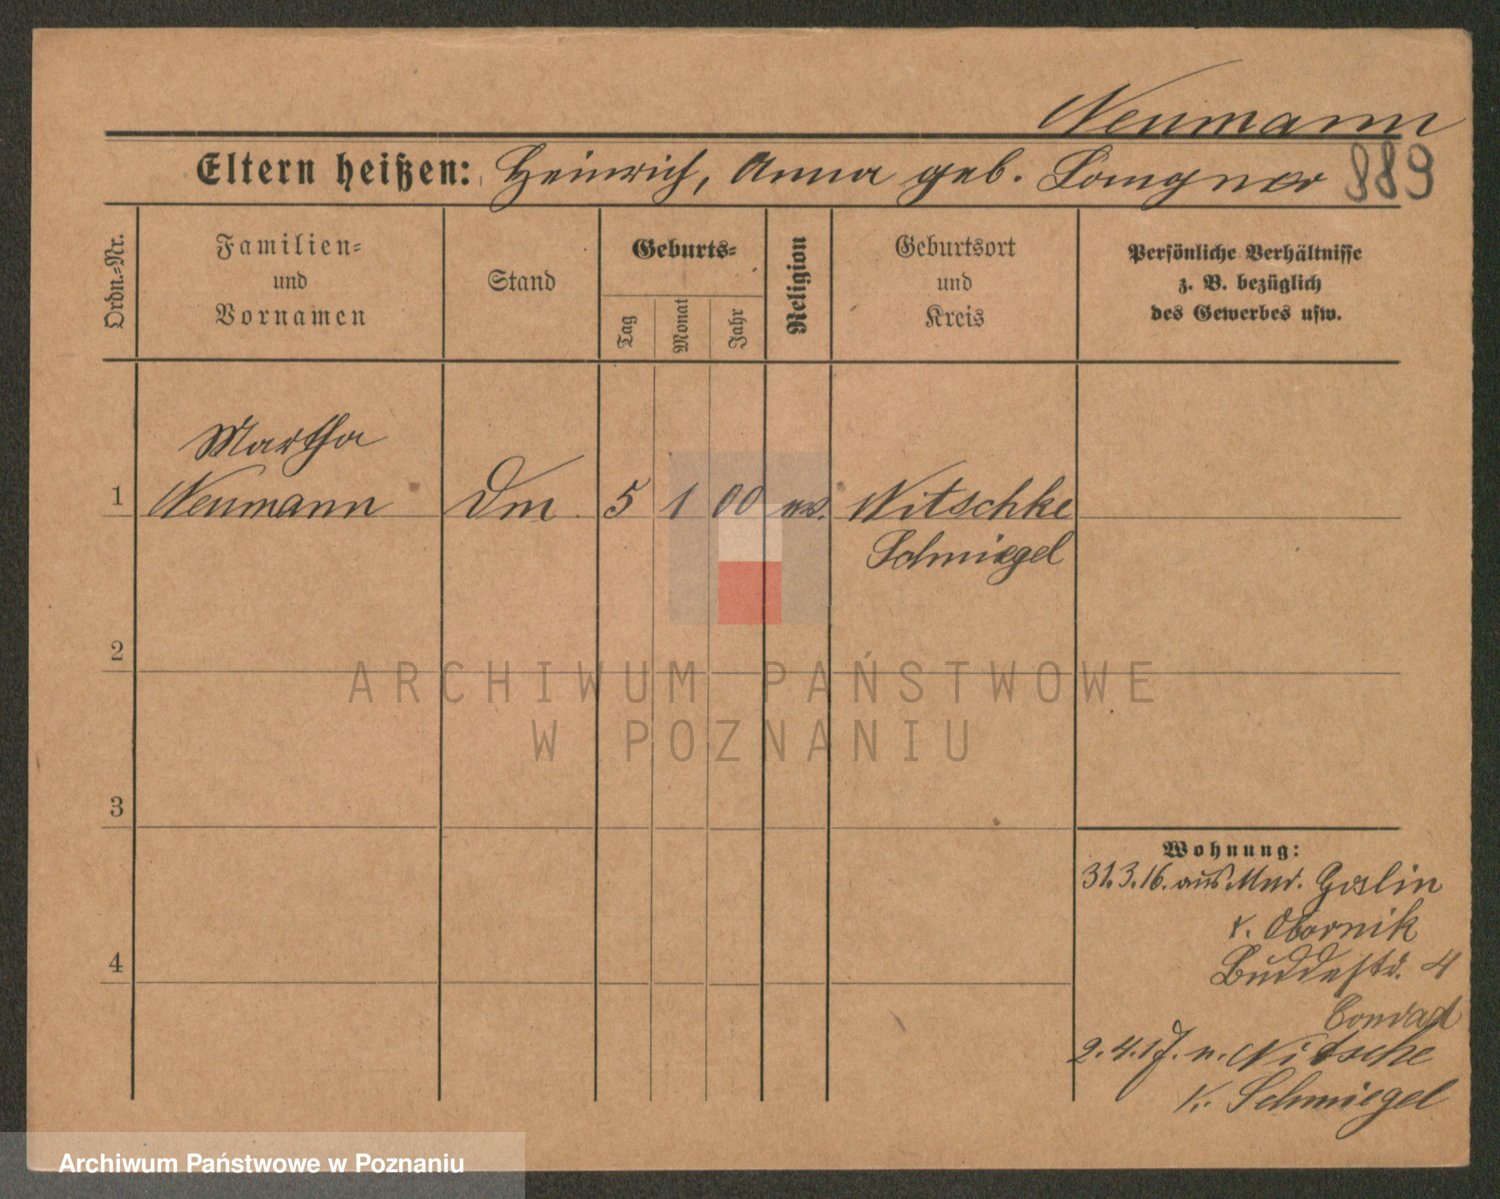 Neumann
Eltern heißen: Heinrich, Anna geb. Langner 889
Ordn.=Nr.
Familien=
und
Vornamen
Stand
Geburts=
Tag
Monat
Jahr
Religion
Geburtsort
und
Kreis
Persönliche Verhältnisse
z. B. bezüglich
des Gewerbes usw.
Martha
1 Neumann Dm 5 1 00 ev. Nitschke
Schmiegel
2
ARCHIWUM PAŃSTWOWE
W POZNANIU
3
Wohnung:
31.3.16. aus Mur. Goslin
K. Obornik
4
Buddestr. 4
Conrad
2.4.17. n. Nitsche
K. Schmiegel
Archiwum Państwowe w Poznaniu